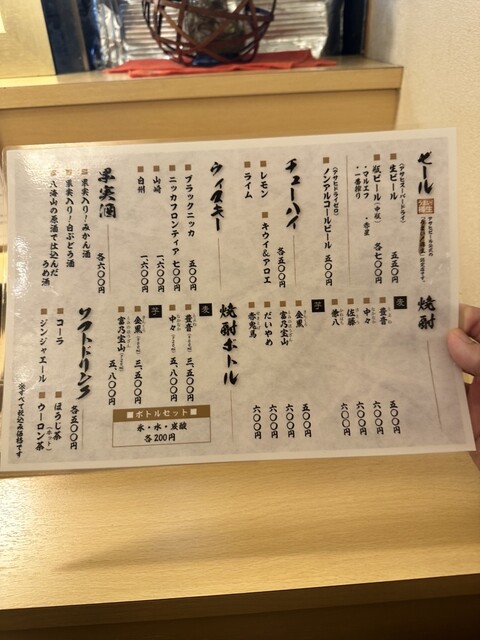 ビール
生ビール 五五〇円
(アサヒスーパードライ)
瓶ビール(中瓶) 各七〇〇円
・マルエフ ・赤星
・一番搾り
ノンアルコールビール 五〇〇円
(アサヒドライゼロ)
チューハイ
各五〇〇円
レモン キウイ&アロエ
ライム
ウィスキー
ブラックニッカ 五〇〇円
ニッカフロンティア 七〇〇円
山崎 一、六〇〇円
白州 一、六〇〇円
果実酒
各六〇〇円
果実入り!みかん酒
果実入り!白ぶどう酒
八海山の原酒で仕込んだうめ酒
焼酎
麦
豊音 五〇〇円
中々 六〇〇円
佐藤 六〇〇円
兼八 六〇〇円
芋
金黒 五〇〇円
富乃宝山 六〇〇円
だいやめ 六〇〇円
赤兎馬 六〇〇円
焼酎ボトル
麦
豊音 三、五〇〇円
中々 五、八〇〇円
芋
金黒 三、五〇〇円
富乃宝山 五、八〇〇円
ボトルセット
氷・水・炭酸
各200円
ソフトドリンク
各五〇〇円
コーラ ほうじ茶(ホット)
ジンジャエール ウーロン茶
※すべて税込み価格です